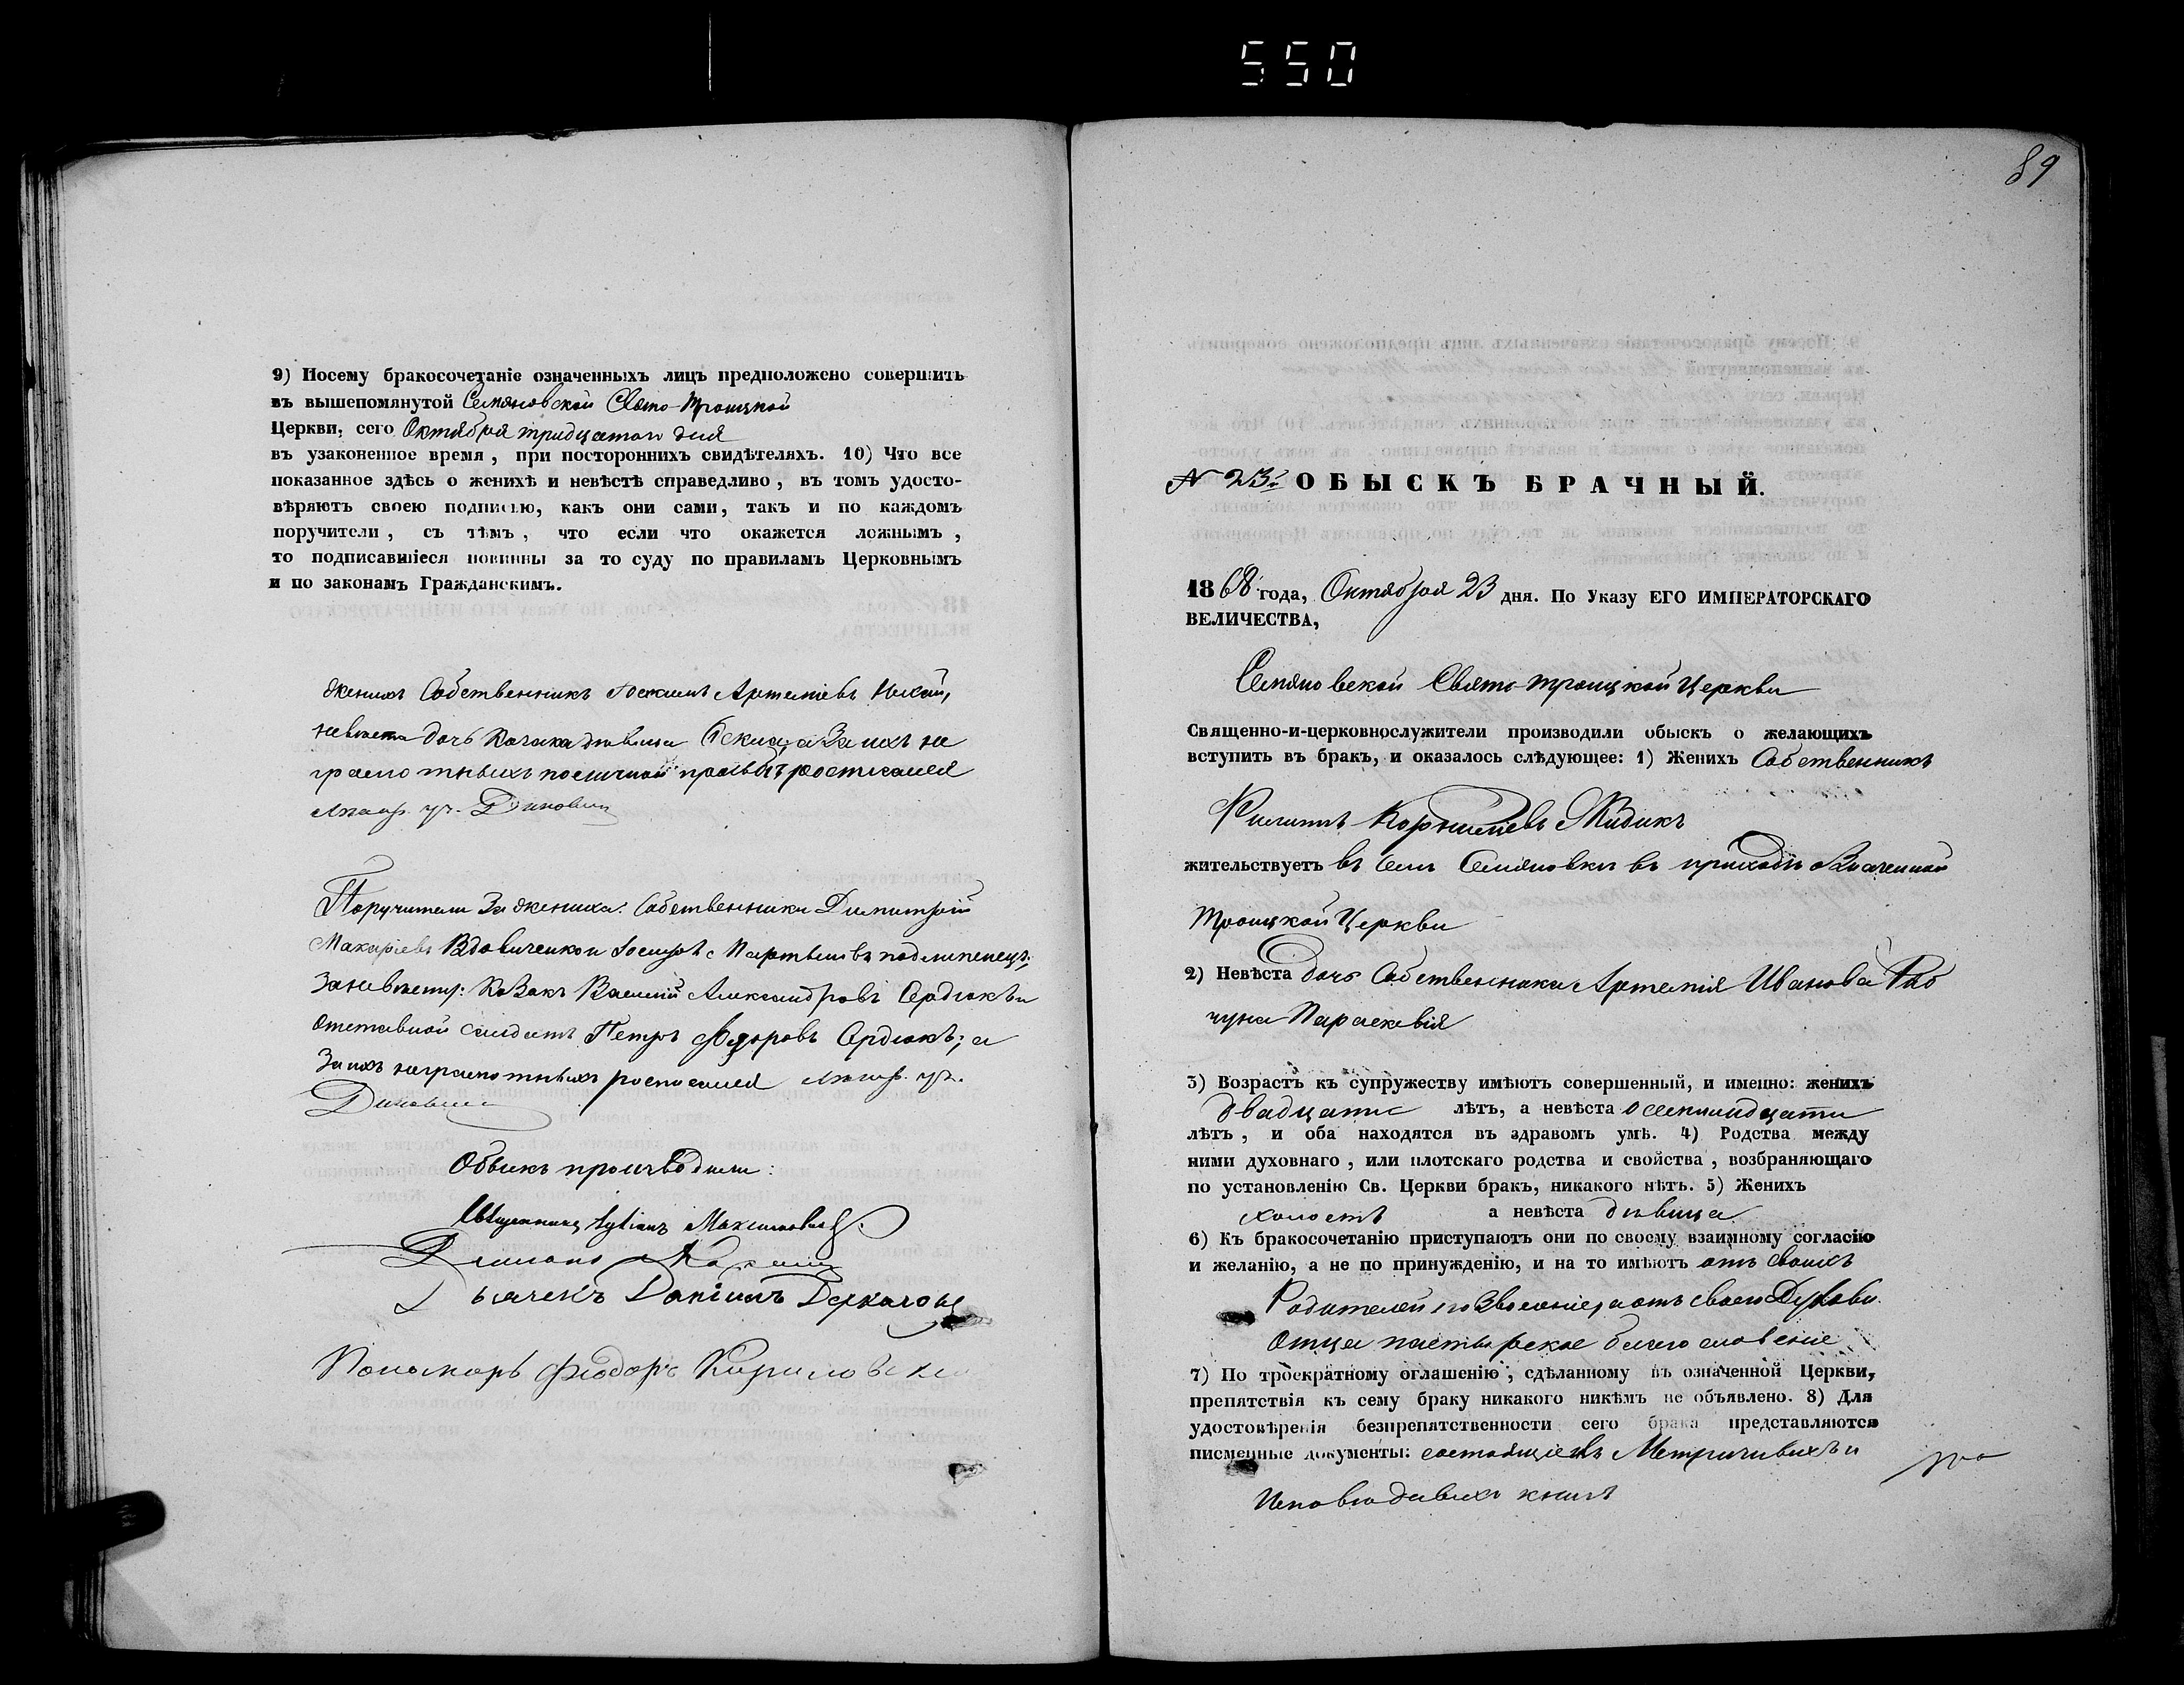 550
9) Посему бракосочетаніе означенныхъ лицъ предположено совершить
въ вышепомянутой Семяновской Свято-Троицкой
Церкви, сего Октября тридцатаго дня
въ узаконенное время, при постороннихъ свидѣтеляхъ. 10) Что все
показанное здѣсь о женихѣ и невѣстѣ справедливо, въ томъ удосто-
вѣряютъ своею подписью, какъ они сами, такъ и по каждомъ
поручители, съ тѣмъ, что если что окажется ложнымъ,
то подписавшіеся повинны за то суду по правиламъ Церковнымъ
и по законамъ Гражданскимъ.
женихъ Собственникъ Артеміевъ
невѣста дочь Козака дѣвица а за ихъ не
грамотныхъ по личной прозьбѣ росписался
Поручители За жениха: Собственники Димитрій
Макаріевъ Вдовиченко и Іосифъ
За невѣсту: Козакъ Василій Александровъ Сердюкъ и
Отставной Солдатъ Петръ Федоровъ Сердюкъ; а
За ихъ неграмотныхъ росписался
Обыскъ производили:
Священникъ Максимовичъ
Дьячекъ Даніилъ
Пономарь Феодоръ
89
№ 23й ОБЫСКЪ БРАЧНЫЙ.
1868 года, Октября 23 дня. По Указу ЕГО ИМПЕРАТОРСКАГО
ВЕЛИЧЕСТВА,
Семяновской Свято-Троицкой Церкви
Священно-и-церковнослужители производили обыскъ о желающихъ
вступить въ бракъ, и оказалось слѣдующее: 1) Женихъ Собственникъ
Филиппъ Корнилиевъ Жидикъ
жительствуетъ въ селѣ Семяновки въ приходѣ означенной
Троицкой Церкви
2) Невѣста дочь Собственника Артемія Иванова Ряб
чуна Параскевія
3) Возрастъ къ супружеству имѣютъ совершенный, и именно: женихъ
двадцати лѣтъ, а невѣста осемнадцати
лѣтъ, и оба находятся въ здравомъ умѣ. 4) Родства между
ними духовнаго, или плотскаго родства и свойства, возбраняющаго
по установленію Св. Церкви бракъ, никакого нѣтъ. 5) Женихъ
холостъ а невѣста дѣвица
6) Къ бракосочетанію приступаютъ они по своему взаимному согласію
и желанію, а не по принужденію, и на то имѣютъ отъ своихъ
Родителей позволеніе, а отъ своего Духовн.
Отца пастырское благословеніе
7) По троекратному оглашенію, сдѣланному въ означенной Церкви,
препятствія къ сему браку никакого никѣмъ не объявлено. 8) Для
удостовѣренія безпрепятственности сего брака представляются
писменные документы: состоящіе въ Метричныхъ и
Исповѣдныхъ книгъ